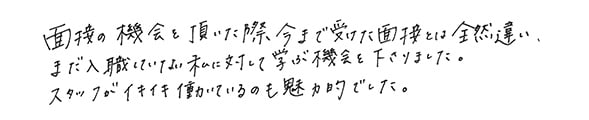 面接の機会を頂いた際、今まで受けた面接とは全然違い、
まだ入職していない私に対して学ぶ機会を下さりました。
スタッフがイキイキ働いているのも魅力的でした。